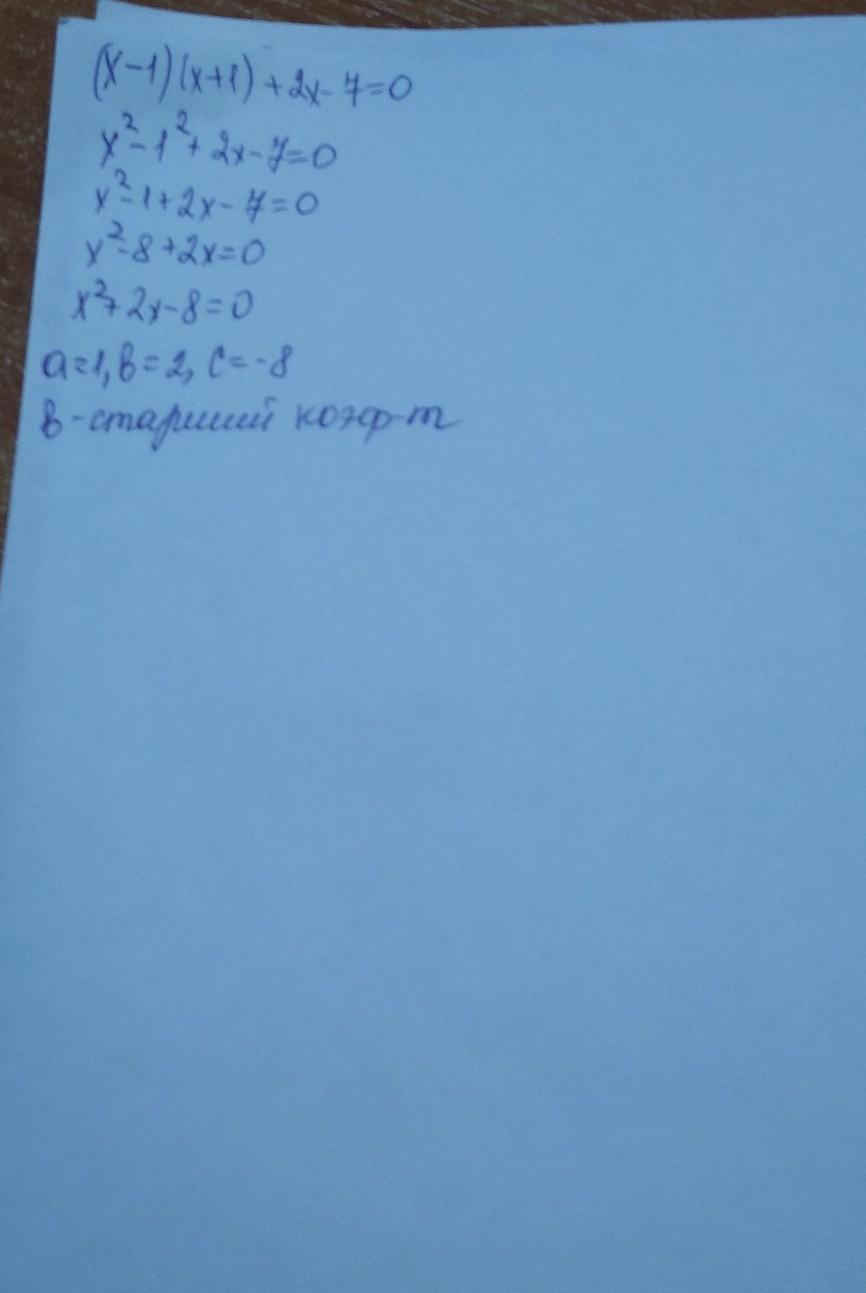 (x-1)(x+1)+2x-7=0
x²-1²+2x-7=0
x²-1+2x-7=0
x²-8+2x=0
x²+2x-8=0
a=1, b=2, c=-8
b-старший коэф-т